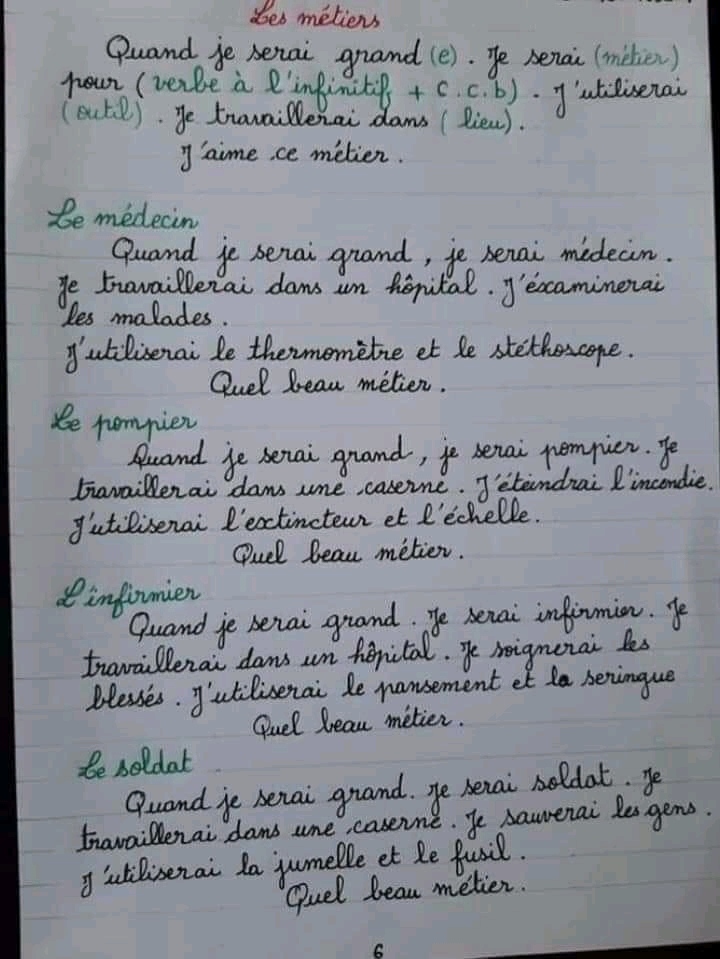 Les métiers
Quand je serai grand (e). Je serai (métier)
pour (verbe à l'infinitif + c.c.b). J'utiliserai
(outil). Je travaillerai dans (lieu).
J'aime ce métier.
Le médecin
Quand je serai grand, je serai médecin.
Je travaillerai dans un hôpital. J'éxaminerai
les malades.
J'utiliserai le thermomètre et le stéthoscope.
Quel beau métier.
Le pompier
Quand je serai grand, je serai pompier. Je
travaillerai dans une caserne. J'éteindrai l'incendie.
J'utiliserai l'extincteur et l'échelle.
Quel beau métier.
L'infirmier
Quand je serai grand. Je serai infirmier. Je
travaillerai dans un hôpital. Je soignerai les
blessés. J'utiliserai le pansement et la seringue
Quel beau métier.
Le soldat
Quand je serai grand. Je serai soldat. Je
travaillerai dans une caserne. Je sauverai les gens.
J'utiliserai la jumelle et le fusil.
Quel beau métier.
6